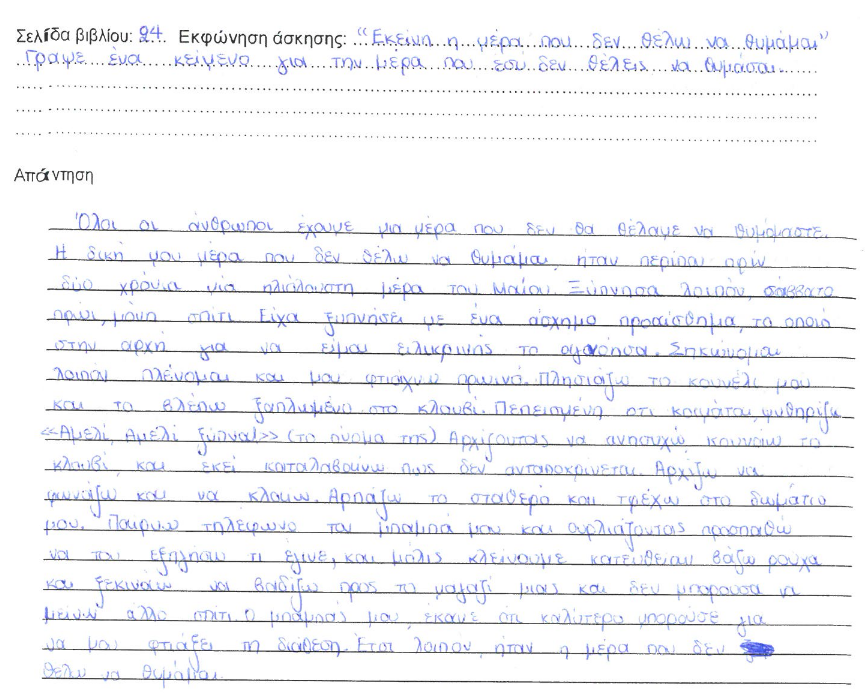 Σελίδα βιβλίου: 24. Εκφώνηση άσκησης: "Εκείνη η μέρα που δεν θέλω να θυμάμαι"
Γράψε ένα κείμενο για την μέρα που εσύ δεν θέλεις να θυμάσαι.
Απάντηση
Όλοι οι άνθρωποι έχουμε μια μέρα που δεν θα θέλαμε να θυμόμαστε.
Η δική μου μέρα που δεν θέλω να θυμάμαι, ήταν περίπου πρίν
δύο χρόνια μια ηλιόλουστη μέρα του Μαίου. Ξύπνησα λοιπόν, σάββατο
πρωι, μόνη σπίτι. Είχα ξυπνήσει με ένα άσχημο προαίσθημα, το οποίο
στην αρχή για να είμαι ειλικρινής το αγνόησα. Σηκώνομαι
λοιπόν πλένομαι και μου φτιάχνω πρωινό. Πλησιάζω το κουνέλι μου
και το βλέπω ξαπλωμένο στο κλουβί. Πεπεισμένη οτι κοιμάται, ψυθηρίζω
<<Αμελί, Αμελί ξύπνα!>> (το όνομα της) Αρχίζοντας να ανησυχώ κουνάω το
κλουβί, και εκεί καταλαβαίνω πως δεν ανταποκρίνεται. Αρχίζω να
φωνάζω και να κλαίω. Αρπάζω το σταθερό και τρέχω στο δωμάτιο
μου. Παίρνω τηλέφωνο τον μπαμπά μου και ουρλιάζοντας προσπαθώ
να του εξηγήσω τι έγινε, και μόλις κλείνουμε κατευθείαν βάζω ρούχα
και ξεκινάω να βαδίζω προς το μαγαζί μας και δεν μπορούσα να
μείνω άλλο σπίτι. Ο μπαμπάς μου, έκανε ότι καλύτερο μπορούσε για
να μου φτιάξει τη διάθεση. Έτσι λοιπόν, ήταν η μέρα που δεν
θέλω να θυμάμαι.